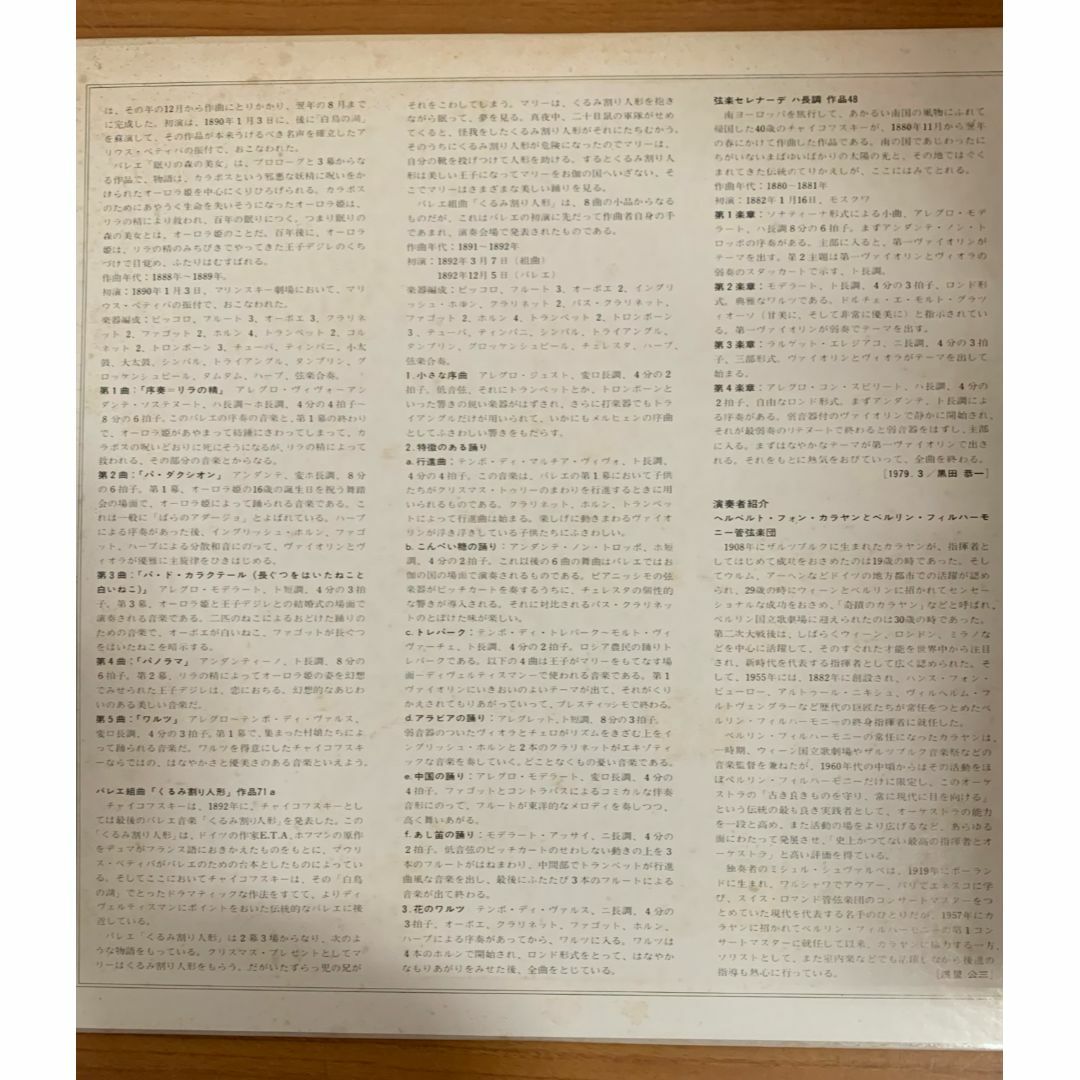 は、その年の12月から作曲にとりかかり、翌年の8月まで
に完成した。初演は、1890年1月3日に、後に「白鳥の湖」
を蘇演して、その作品が本来うけるべき名声を確立したア
リウス・ペティパの振付で、おこなわれた。
バレエ「眠りの森の美女」は、プロローグと3幕からな
る作品で、物語は、カラボスという邪悪な妖精に呪いをか
けられたオーロラ姫を中心にくりひろげられる。カラボス
のためにあやうく生命を失いそうになったオーロラ姫は、
リラの精により救われ、百年の眠りにつく。つまり眠りの
森の美女とは、オーロラ姫のことだ。百年後に、オーロラ
姫は、リラの精のみちびきでやってきた王子デジレのくち
づけで目覚め、ふたりはむすばれる。
作曲年代：1888年〜1889年。
初演：1890年1月3日、マリンスキー劇場において、マリ
ウス・ペティパの振付で、おこなわれた。
楽器編成：ピッコロ、フルート3、オーボエ3、クラリネ
ット2、ファゴット2、ホルン4、トランペット2、コル
ネット2、トロンボーン3、チューバ、ティンパニ、小太
鼓、大太鼓、シンバル、トライアングル、タンブリン、グ
ロッケンシュピール、タムタム、ハープ、弦楽合奏。
第1曲：「序奏=リラの精」 アレグロ・ヴィヴォーアン
ダンテ・ソステヌート、ハ長調〜ホ長調、4分の4拍子〜
8分の6拍子。このバレエの序奏の音楽と、第1幕の終わり
で、オーロラ姫があやまって紡錘にさわってしまって、カ
ラボスの呪いどおりに死にそうになるが、リラの精によって
救われる、その部分の音楽とからなる。
第2曲：「パ・ダクシオン」 アンダンテ、変ホ長調、8分
の6拍子。第1幕、オーロラ姫の16歳の誕生日を祝う舞踏
会の場面で、オーロラ姫によって踊られる音楽である。こ
れは一般に「ばらのアダージョ」とよばれている。ハープ
による序奏があった後、イングリッシュ・ホルン、ファゴ
ット、ハープによる分散和音にのって、ヴァイオリンとヴ
ィオラが優雅に主旋律をひきはじめる。
第3曲：「パ・ド・カラクテール（長ぐつをはいたねこと
白いねこ）」 アレグロ・モデラート、ト短調、4分の3拍
子。第3幕、オーロラ姫と王子デジレとの結婚式の場面で
演奏される音楽である。二匹のねこによるおどけた踊りの
ための音楽で、オーボエが白いねこ、ファゴットが長ぐつ
をはいたねこを暗示する。
第4曲：「パノラマ」 アンダンティーノ、ト長調、8分の
6拍子。第2幕、リラの精によってオーロラ姫の姿を幻想
でみせられた王子デジレは、恋におちる。幻想的なあじわ
いのある美しい音楽だ。
第5曲：「ワルツ」 アレグロ〜テンポ・ディ・ヴァルス、
変ロ長調、4分の3拍子。第1幕で、集まった村娘たちによ
って踊られる音楽だ。ワルツを得意にしたチャイコフスキ
ーならではの、はなやかさと優美さのある音楽といえよう。
バレエ組曲「くるみ割り人形」作品71a
チャイコフスキーは、1892年に、チャイコフスキーとし
ては最後のバレエ音楽「くるみ割り人形」を発表した。この
「くるみ割り人形」は、ドイツの作家E.T.A.ホフマンの原作
をデュマがフランス語におきかえたものをもとに、プウリ
ス・ペティパがバレエのための台本としたものによってい
る。そしてここにおいてチャイコフスキーは、その「白鳥
の湖」でとったドラマティックな作法をすてて、よりディ
ヴェルティスマンにポイントをおいた伝統的なバレエに後
近している。
バレエ「くるみ割り人形」は2幕3場からなり、次のよ
うな物語をもっている。クリスマス・プレゼントとしてマ
リーはくるみ割り人形をもらう。だがいたずらっ児の兄が
それをこわしてしまう。マリーは、くるみ割り人形を抱き
ながら眠って、夢を見る。真夜中、二十日鼠の軍隊がせめ
てくると、怪我をしたくるみ割り人形がそれにたちむかう。
そのうちにくるみ割り人形が危険になったのでマリーは、
自分の靴を投げつけて人形を助ける。するとくるみ割り人
形は美しい王子になってマリーをお伽の国へいざない、そ
こでマリーはさまざまな美しい踊りを見る。
バレエ組曲「くるみ割り人形」は、8曲の小品からなる
ものだが、これはバレエの初演に先だって作曲者自身の手
であまれ、演奏会場で発表されたものである。
作曲年代：1891〜1892年
初演：1892年3月7日（組曲）
1892年12月5日（バレエ）
楽器編成：ピッコロ、フルート3、オーボエ2、イングリ
ッシュ・ホルン、クラリネット2、バス・クラリネット、
ファゴット2、ホルン4、トランペット2、トロンボーン
3、テューバ、ティンパニ、シンバル、トライアングル、
タンブリン、グロッケンシュピール、チェレスタ、ハープ、
弦楽合奏。
1.小さな序曲 アレグロ・ジェスト、変ロ長調、4分の2
拍子。低音弦、それにトランペットとか、トロンボーンと
いった響きの鋭い楽器がはずされ、さらに打楽器でもトライ
アングルだけが用いられて、いかにもメルヒェンの序曲
としてふさわしい響きをもたらす。
2.特徴のある踊り
a.行進曲：テンポ・ディ・マルチア・ヴィヴォ、ト長調、
4分の4拍子。この音楽は、バレエの第1幕において子供
たちがクリスマス・トゥリーのまわりを行進するときに用
いられるものである。クラリネット、ホルン、トランペッ
トによって行進曲は始まる。楽しげに動きまわるヴァイオ
リンが浮き浮きしている子供たちにふさわしい。
b.こんぺい糖の踊り：アンダンテ・ノン・トロッポ、ホ短
調、4分の2拍子。これ以後の6曲の舞曲はバレエではお
伽の国の場面で演奏されるものである。ピアニッシモの弦
楽器がピッチカートを奏するうちに、チェレスタの個性的
な響きが導入される。それに対比されるバス・クラリネッ
トのとぼけた味が楽しい。
c.トレパーク：テンポ・ディ・トレパーク〜モルト・ヴィ
ヴァーチェ、ト長調、4分の2拍子。ロシア農民の踊りト
レパークである。以下の4曲は王子がマリーをもてなす場
面―ディヴェルティスマン―で使われる音楽である。第1
ヴァイオリンにいきおいのよいテーマが出て、それがくり
かえされてもりあがっていって、プレスティッシモで終わる。
d.アラビアの踊り：アレグレット、ト短調、8分の3拍子。
弱音器のついたヴィオラとチェロがリズムをきざむ上をイ
ングリッシュ・ホルンと2本のクラリネットがエキゾティ
ックな音楽を奏していく。どことなくもの憂い音楽である。
e.中国の踊り：アレグロ・モデラート、変ロ長調、4分の
4拍子。ファゴットとコントラバスによるコミカルな伴奏
音形にのって、フルートが東洋的なメロディを奏しつつ、
高く舞いあがる。
f.あし笛の踊り：モデラート・アッサイ、ニ長調、4分の
2拍子。低音弦のピッチカートのせわしない動きの上を3
本のフルートがはねまわり、中間部でトランペットが行進
曲風な音楽を出し、最後にふたたび3本のフルートによる
音楽が出て終わる。
3.花のワルツ テンポ・ディ・ヴァルス、ニ長調、4分の
3拍子。オーボエ、クラリネット、ファゴット、ホルン、
ハープによる序奏があってから、ワルツに入る。ワルツは
4本のホルンで開始され、ロンド形式をとって、はなやか
なもりあがりをみせた後、全曲をとじている。
弦楽セレナーデ ハ長調 作品48
南ヨーロッパを旅行して、あかるい南国の風物にふれて
帰国した40歳のチャイコフスキーが、1880年11月から翌年
の春にかけて作曲した作品である。南の国であじわったに
ちがいないまばゆいばかりの太陽の光と、その地ではぐく
まれてきた伝統のてりかえしが、ここにはみてとれる。
作曲年代：1880〜1881年
初演：1882年1月16日、モスクワ
第1楽章：ソナティーナ形式による小曲、アレグロ・モデ
ラート、ハ長調8分の6拍子。まずアンダンテ・ノン・ト
ロッポの序奏がある。主部に入ると、第一ヴァイオリンが
テーマを出す。第2主題は第一ヴァイオリンとヴィオラの
弱奏のスタッカートで示す、ト長調。
第2楽章：モデラート、ト長調、4分の3拍子、ロンド形
式。典雅なワルツである。ドルチェ・エ・モルト・グラツ
ィオーソ（甘美に、そして非常に優美に）と指示されてい
る。第一ヴァイオリンが弱奏でテーマを出す。
第3楽章：ラルゲット・エレジアコ、ニ長調、4分の3拍
子、三部形式。ヴァイオリンとヴィオラがテーマを出して
始まる。
第4楽章：アレグロ・コン・スピリート、ハ長調、4分の
2拍子、自由なロンド形式。まずアンダンテ、ト長調によ
る序奏がある。弱音器付のヴァイオリンで静かに開始され、
それが最弱奏のリテヌートで終わると弱音器をはずし、主部
に入る。まずはなやかなテーマが第一ヴァイオリンで出さ
れる。それをもとに熱気をおびていって、全曲を終わる。
［1979.3／黒田 恭一］
演奏者紹介
ヘルベルト・フォン・カラヤンとベルリン・フィルハーモ
ニー管弦楽団
1908年にザルツブルクに生まれたカラヤンが、指揮者と
してはじめて成功をおさめたのは19歳の時であった。そし
てウルム、アーヘンなどドイツの地方都市での活躍が認め
られ、29歳の時にウィーンとベルリンに招かれてセンセー
ショナルな成功をおさめ、「奇蹟のカラヤン」などと呼ばれ、
ベルリン国立歌劇場に迎えられたのは30歳の時であった。
第二次大戦後は、しばらくウィーン、ロンドン、ミラノな
どを中心に活躍して、そのすぐれた才能を世界中から注目
され、新時代を代表する指揮者として広く認められた。そ
して、1955年には、1882年に創設され、ハンス・フォン・
ビューロー、アルトゥール・ニキシュ、ヴィルヘルム・フ
ルトヴェングラーなど歴代の巨匠たちが常任をつとめたベ
ルリン・フィルハーモニーの終身指揮者に就任した。
ベルリン・フィルハーモニーの常任になったカラヤンは、
一時期、ウィーン国立歌劇場やザルツブルク音楽祭などの
音楽監督を兼ねたが、1960年代の中頃からはその活動をほ
ぼベルリン・フィルハーモニーだけに限定し、このオーケ
ストラの「古き良きものを守り、常に現代に目を向ける」
という伝統の最も良き実践者として、オーケストラの能力
を一段と高め、また活動の場をより広げるなど、あらゆる
面にわたって発展させ、「史上かつてない最高の指揮者とオ
ーケストラ」と高い評価を得ている。
独奏者のミシェル・シュヴァルベは、1919年にポーラン
ドに生まれ、ワルシャワでアウアー、パリでエネスコに学
び、スイス・ロマンド管弦楽団のコンサートマスターをつ
とめていた現代を代表する名手のひとりだが、1957年にカ
ラヤンに招かれてベルリン・フィルハーモニーの第1コン
サートマスターに就任して以来、カラヤンに協力する一方、
ソリストとして、また室内楽などでも活躍しながら後進の
指導も熱心に行っている。
［浅里 公三］